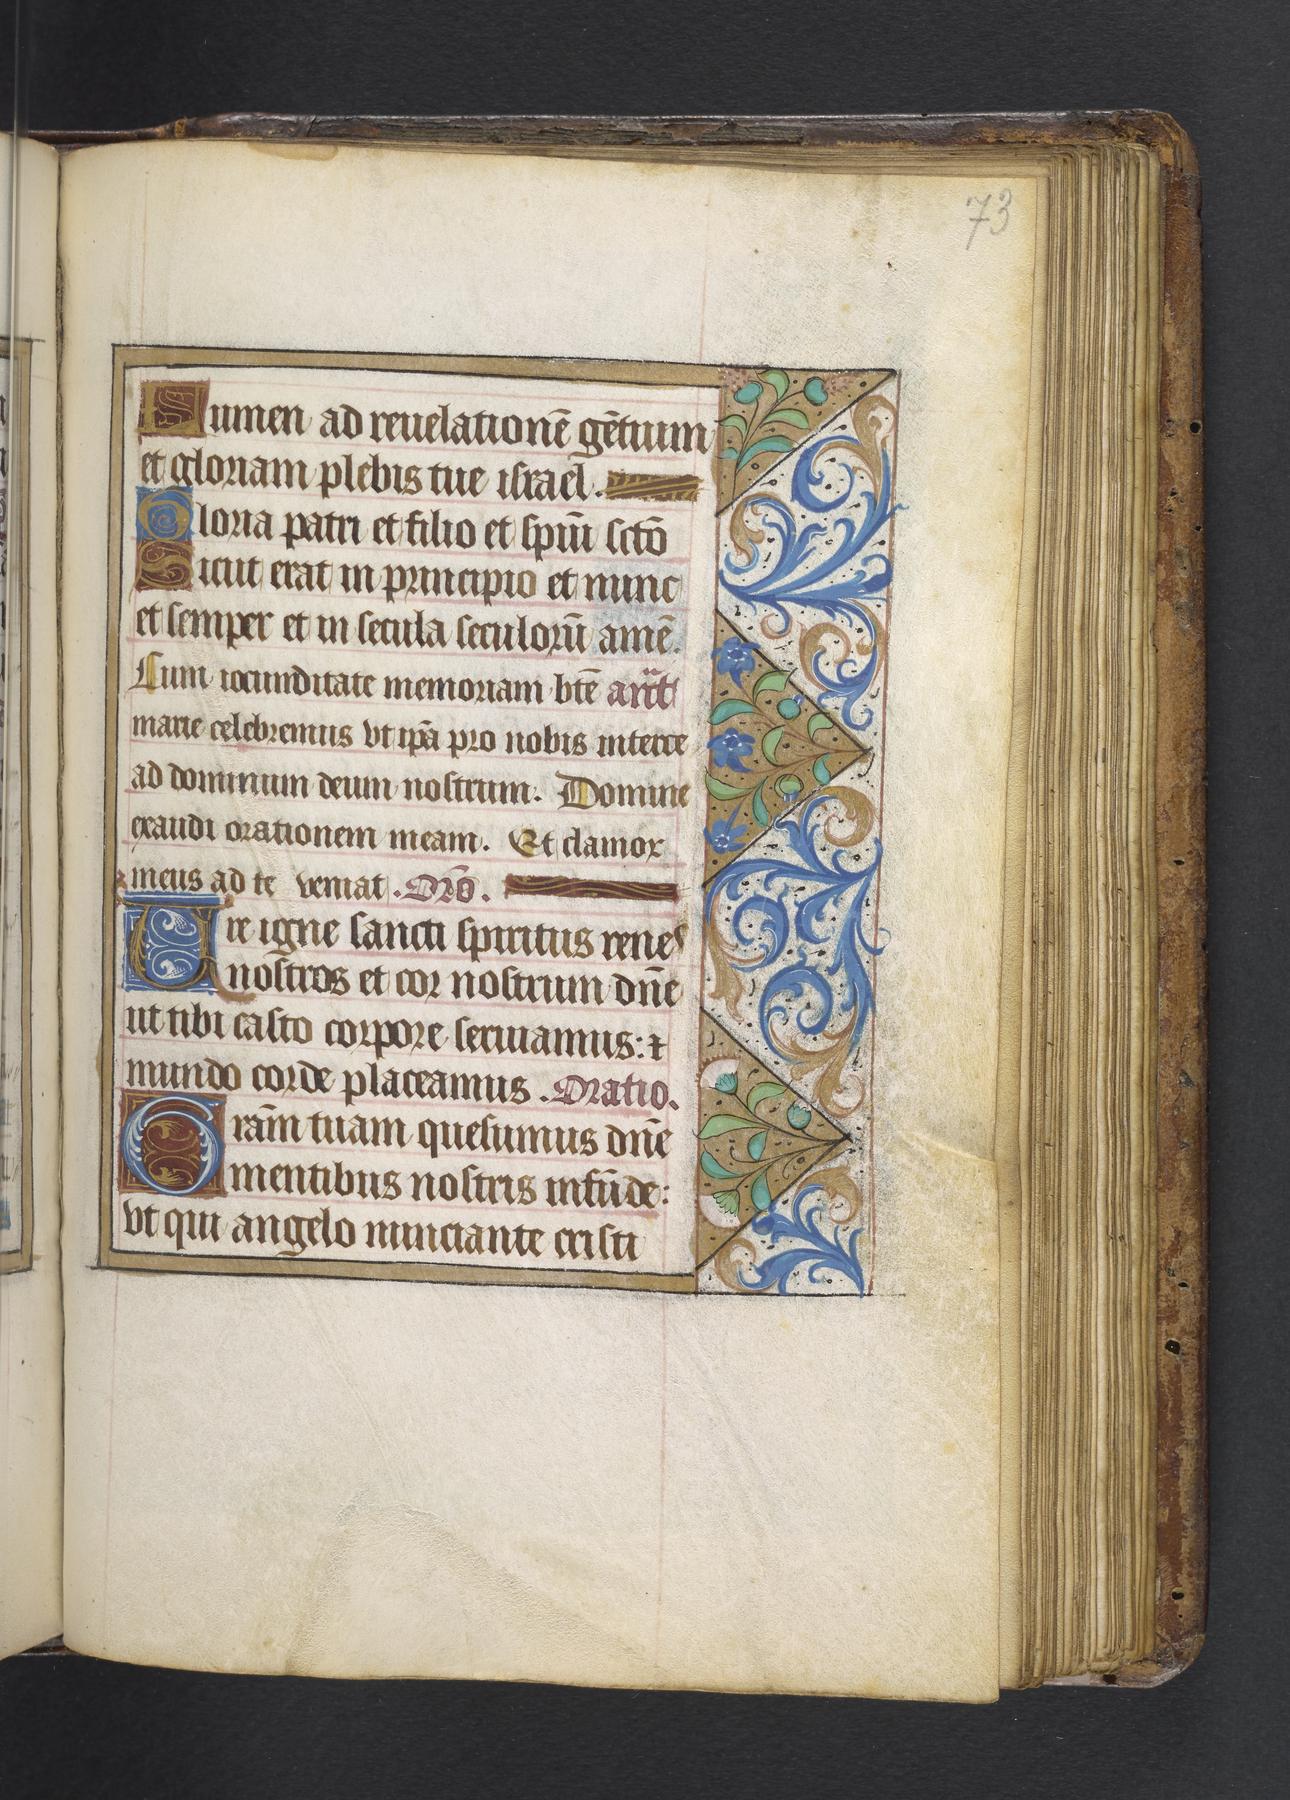 73
Lumen ad reuelationē gētium
et gloriam plebis tue israel.
Gloria patri et filio et spiū scto̅
Sicut erat in principio et nunc
et semper et in secula seculorū amē.
Cum iocunditate memoriam bte̅ ant̅
marie celebremus vt ipa̅ pro nobis interce
ad dominum deum nostrum. Domine
exaudi orationem meam. Et clamor
meus ad te veniat. Oro̅.
Ure igne sancti spiritus renes
nostros et cor nostrum dn̅e
ut tibi casto corpore seruiamus: ⁊
mundo corde placeamus. Oratio.
Gram̅ tuam quesumus dn̅e
mentibus nostris infūde:
vt qui angelo nunciante cristi